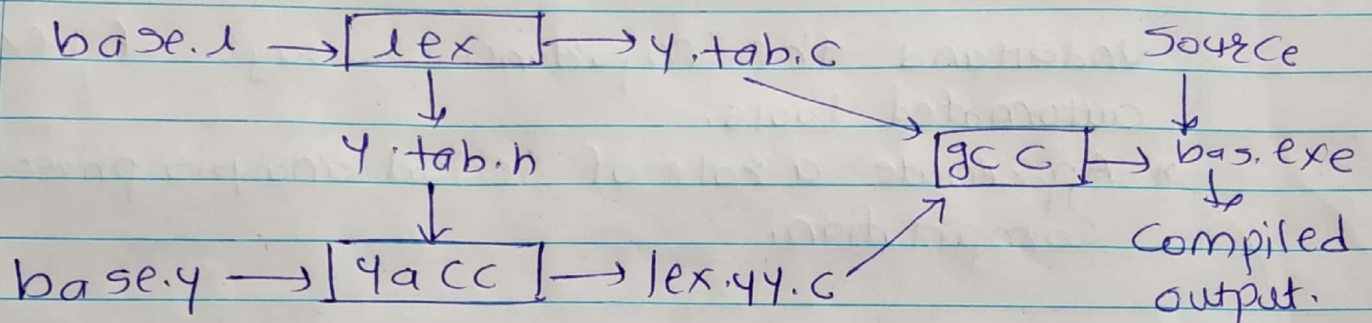 base.l → lex → y.tab.c Source
y.tab.h gcc → bas.exe
base.y → yacc → lex.yy.c compiled
output.